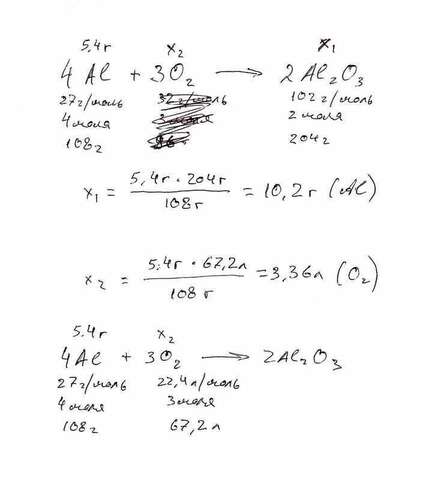 5,4г x₂ x₁
4Al + 3O₂ → 2Al₂O₃
27г/моль 32г/моль 102г/моль
4моля 3моля 2моля
108г 204г
x₁ = 5,4г · 204г / 108г = 10,2г (Al)
x₂ = 5,4г · 67,2л / 108г = 3,36л (O₂)
5.4г x₂
4Al + 3O₂ → 2Al₂O₃
27г/моль 22,4л/моль
4моля 3моля
108г 67,2л